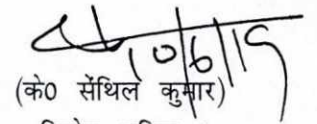 10/6/19
(के0 सेंथिल कुमार)